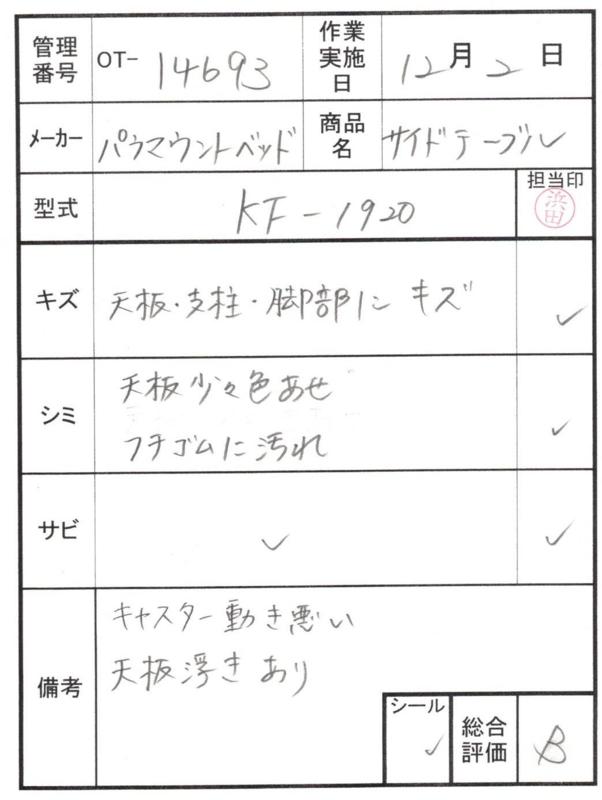 管理番号 OT- 14693 作業実施日 12月2日
メーカー パラマウントベッド 商品名 サイドテーブル
型式 KF-1920 担当印 浜田
キズ 天板・支柱・脚部にキズ ✓
シミ 天板少々色あせ
フチゴムに汚れ ✓
サビ ✓ ✓
備考 キャスター動き悪い
天板浮きあり
シール ✓ 総合評価 B